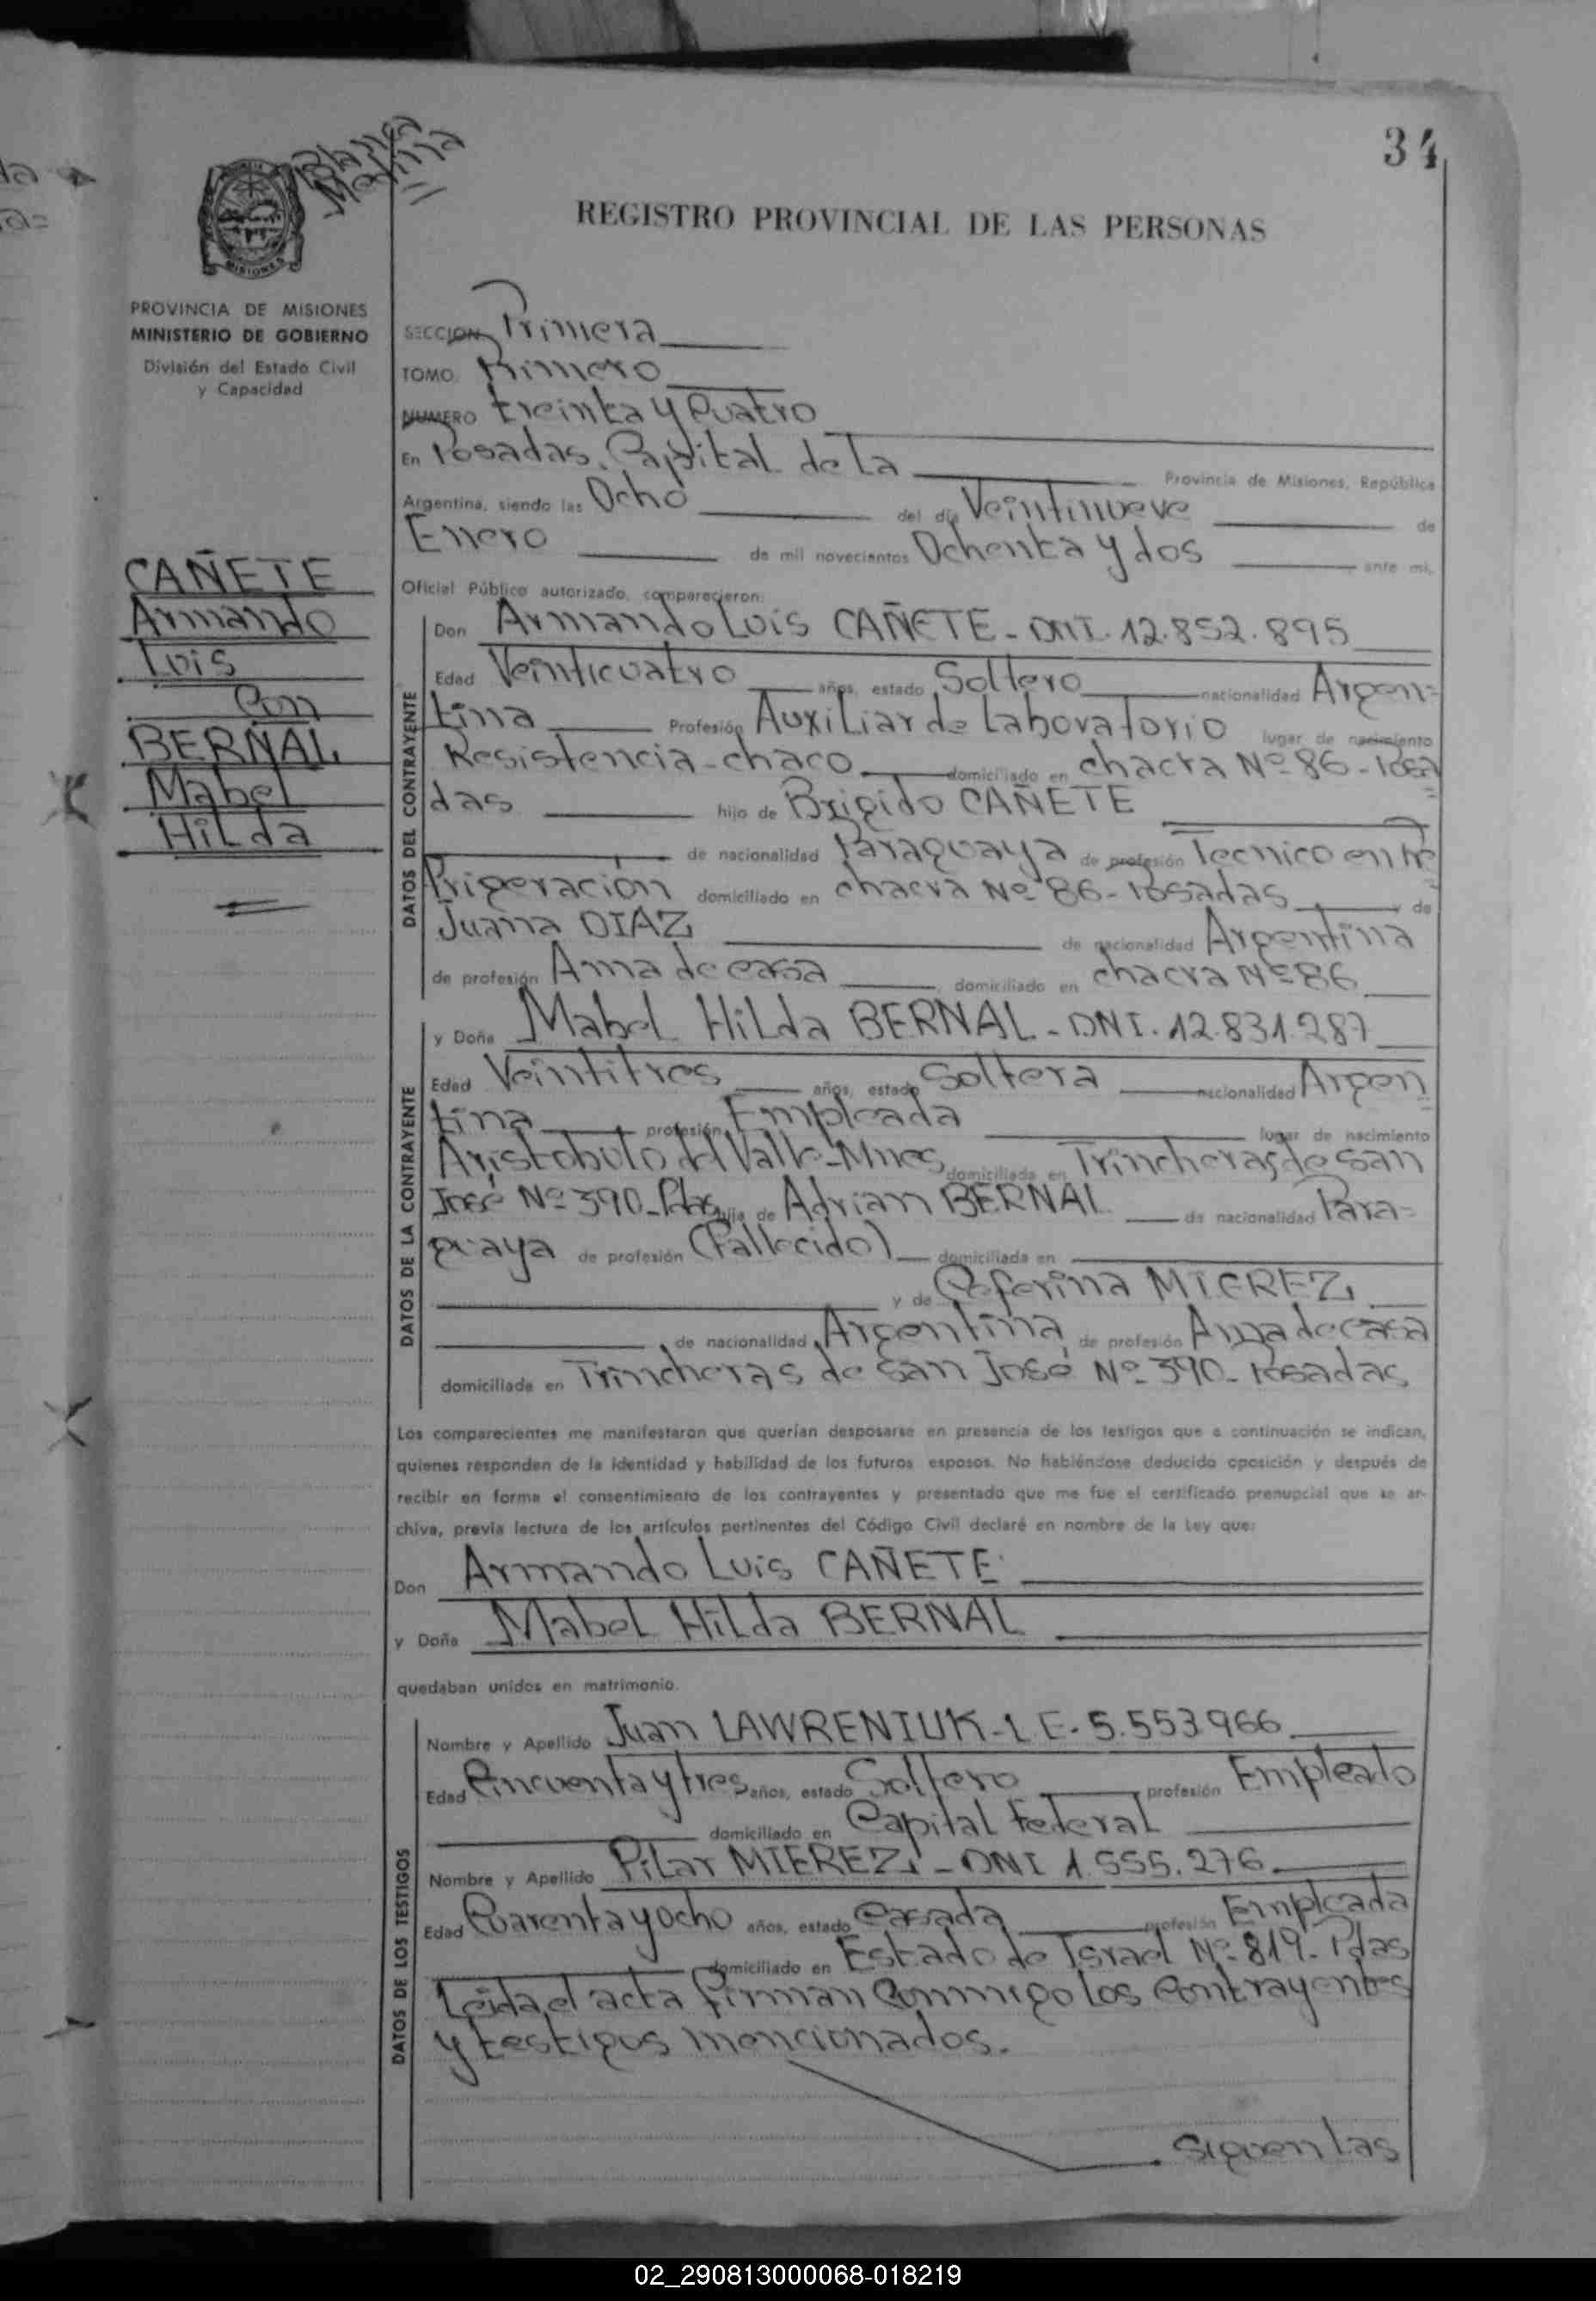 34
REGISTRO PROVINCIAL DE LAS PERSONAS
MISIONES
PROVINCIA DE MISIONES
MINISTERIO DE GOBIERNO
División del Estado Civil
y Capacidad
CAÑETE
Armando
Luis
Con
BERNAL
Mabel
Hilda
SECCION Primera
TOMO Primero
NUMERO treinta y Cuatro
En Posadas, Capital de La Provincia de Misiones, República
Argentina, siendo las Ocho del día Veintinueve de
Enero de mil novecientos Ochenta y dos ante mi,
Oficial Público autorizado, comparecieron:
DATOS DEL CONTRAYENTE
Don Armando Luis CAÑETE - DNI. 12.852.895
Edad Veinticuatro años, estado Soltero nacionalidad Argen=
tina Profesión Auxiliar de Laboratorio lugar de nacimiento
Resistencia - chaco domiciliado en chacra Nº 86 - Posa
das hijo de Brigido CAÑETE
de nacionalidad Paraguaya de profesión Tecnico en Re
frigeración domiciliado en chacra Nº 86 - Posadas y de
Juana DIAZ de nacionalidad Argentina
de profesión Ama de casa domiciliado en chacra Nº 86
DATOS DE LA CONTRAYENTE
y Doña Mabel Hilda BERNAL - DNI. 12.831.287
Edad Veintitres años, estado Soltera nacionalidad Argen
tina profesión Empleada lugar de nacimiento
Aristobulo del Valle - Mnes domiciliada en Trincheras de San
José Nº 390 - Pdas hija de Adrian BERNAL de nacionalidad Para=
guaya de profesión (Fallecido) domiciliada en
y de Ceferina MIEREZ
de nacionalidad Argentina de profesión Ama de casa
domiciliada en Trincheras de San José Nº 390 - Posadas
Los comparecientes me manifestaron que querían desposarse en presencia de los testigos que a continuación se indican,
quienes responden de la identidad y habilidad de los futuros esposos. No habiéndose deducido oposición y después de
recibir en forma el consentimiento de los contrayentes y presentado que me fue el certificado prenupcial que se ar-
chiva, previa lectura de los artículos pertinentes del Código Civil declaré en nombre de la Ley que:
Don Armando Luis CAÑETE
y Doña Mabel Hilda BERNAL
quedaban unidos en matrimonio.
DATOS DE LOS TESTIGOS
Nombre y Apellido Juan LAWRENIUK - L E. 5.553.966
Edad Cincuenta y tres años, estado Soltero profesión Empleado
domiciliado en Capital Federal
Nombre y Apellido Pilar MIEREZ - DNI 1.555.276
Edad Cuarenta y ocho años, estado Casada profesión Empleada
domiciliado en Estado de Israel Nº 819 - Pdas
Leida el acta firman Conmigo los Contrayentes
y testigos mencionados.
Siguen las
02_290813000068-018219